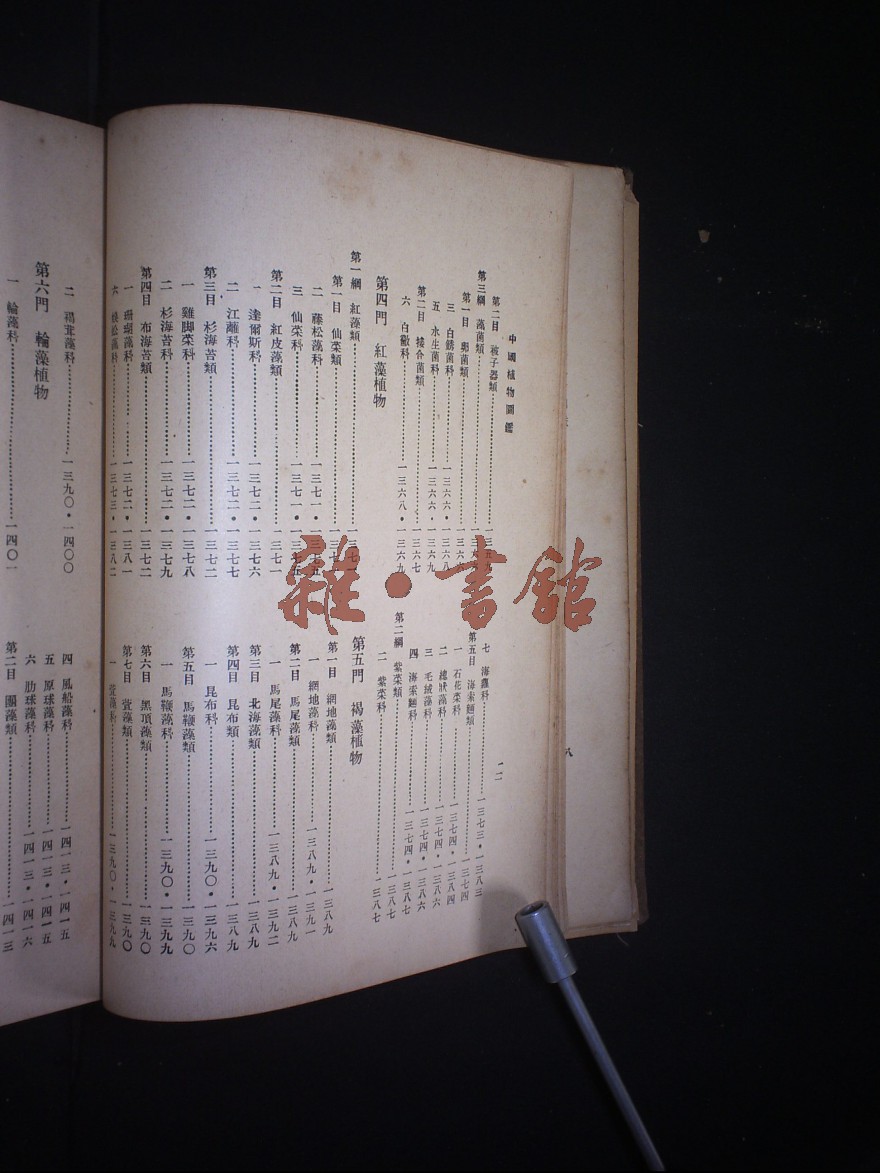 中國植物圖鑑
二二
第二目 被子器類
第三綱 藻菌類
第一目 卵菌類
三 白銹菌科 一三六六•一三六八
五 水生菌科 一三六六•一三六九
第二目 接合菌類 一三六七
六 白黴科 一三六八•一三六九
第四門 紅藻植物
第一綱 紅藻類
第一目 仙菜類
二 藤松藻科 一三七一•
三 仙菜科 一三七一•
第二目 紅皮藻類 一三七一
一 達爾斯科 一三七二•一三七六
二 江蘺科 一三七二•一三七七
第三目 杉海苔類 一三七二
一 雞脚菜科 一三七二•一三七八
二 杉海苔科 一三七二•一三七九
第四目 布海苔類 一三七二
一 珊瑚藻科 一三七二•一三八一
六 藻科 一三七三•一三八二
七 海蘿科 一三七三•一三八三
第五目 海索麵類 一三七四
一 石花菜科 一三七四•一三八四
二 總狀藻科 一三七四•一三八六
三 毛絨藻科 一三七四•一三八六
四 海索麵科 一三七四•一三八七
第二綱 紫菜類 一三八七
二 紫菜科 一三八七
第五門 褐藻植物
第一目 網地藻類 一三八九
一 網地藻科 一三八九•一三九一
第二目 馬尾藻類 一三八九
一 馬尾藻科 一三八九•一三九二
第三目 北海藻類 一三八九
第四目 昆布類 一三八九
一 昆布科 一三九〇•一三九六
第五目 馬鞭藻類 一三九〇
一 馬鞭藻科 一三九〇•一三九九
第六目 黑頂藻類 一三九〇
第七目 萱藻類 一三九〇
一 萱藻科 一三九〇•一三九九
二 褐茸藻科 一三九〇•一四〇〇
第六門 輪藻植物
一 輪藻科 一四〇一
四 風船藻科 一四一三•一四一五
五 原球藻科 一四一三•一四一五
六 肋球藻科 一四一三•一四一六
第二目 團藻類 一四一三
八
雜•書館